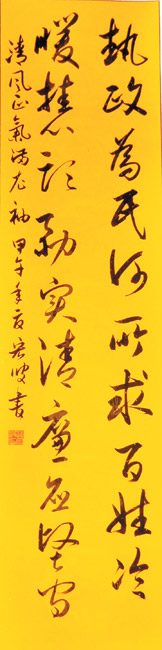 執政為民何所求百姓冷
暖挂心头務实清廉应坚守
清风正氣满衣袖 甲午年夏书